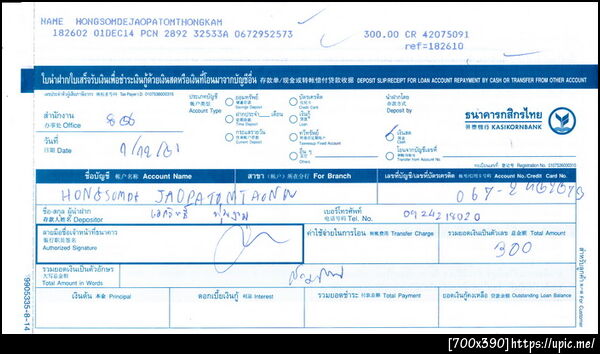 NAME HONGSOMDEJAOPATOMTHONGKAM
182602 01DEC14 PCN 2892 32533A 0672952573 300.00 CR 42075091
ref=182610
ใบนำฝาก/ใบเสร็จรับเงินเพื่อชำระเงินกู้ด้วยเงินสดหรือเงินที่โอนมาจากบัญชีอื่น 存款单/现金或转帐偿付贷款收据 DEPOSIT SLIP/RECEIPT FOR LOAN ACCOUNT REPAYMENT BY CASH OR TRANSFER FROM OTHER ACCOUNT
เลขประจำตัวผู้เสียภาษีอากร Tax Payer I.D. 0107536000315
สำนักงาน
办事处 Office
วันที่
日期 Date
ประเภทบัญชี
帐户类型
Account Type
ออมทรัพย์
储蓄存款
Savings Deposit
ฝากประจำ เดือน
定期存款
Time Deposit
กระแสรายวัน
活期存款
Current Deposit
บัตรเครดิต
信用卡
Credit Card
เงินกู้
贷款
Loan
ทวีทรัพย์
Taweesup Fixed Account
อื่น ๆ
其它
Others
นำฝากโดย
存款方式
By
เงินสด
现金
Cash
โอนจากบัญชีเลขที่
Transfer from Account No.
ธนาคารกสิกรไทย
开泰银行 KASIKORNBANK
ทะเบียนเลขที่ Registration No. 0107536000315
ชื่อบัญชี 帐户名称 Account Name สาขา (帐户) 所在分行 For Branch เลขที่บัญชี/เลขที่บัตร 帐号/信用卡号码 Account No./Credit Card No.
HONGSOMDE JAOPATOMTHONG
ชื่อ-สกุล ผู้นำฝาก
存款人姓名 Depositor
เบอร์โทรศัพท์
电话号码 Tel. No. 0924218020
ลายมือชื่อเจ้าหน้าที่ธนาคาร
银行职员签名
Authorized Signature
ค่าใช้จ่ายในการโอน 转帐费用 Transfer Charge รวมยอดเงินเป็นตัวเลข 总金额 Total Amount
300
รวมยอดเงินเป็นตัวอักษร
大写总金额
Total Amount in Words
เงินต้น 本金 Principal ดอกเบี้ยเงินกู้ 利息 Interest รวมยอดชำระ 付款总额 Total Payment ยอดเงินกู้คงเหลือ 贷款余额 Outstanding Loan Balance
สำหรับลูกค้า For Customer
9905335-8-14
[700x390]https://upic.me/